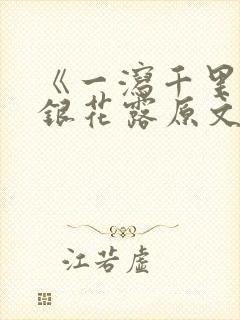 《一泻千里
银花露原文
江若虚